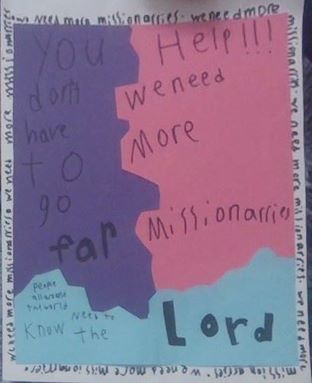 we need more missionarries. we need more
missionarries. we need more missionarries. we need more
missionarries. we need more missionarries.
we need more missionarries. we need more missionarries
You
don't
have
to
go
far
Help!!!
we need
More
Missionarries
people
all around
the world
Need to
Know the
Lord